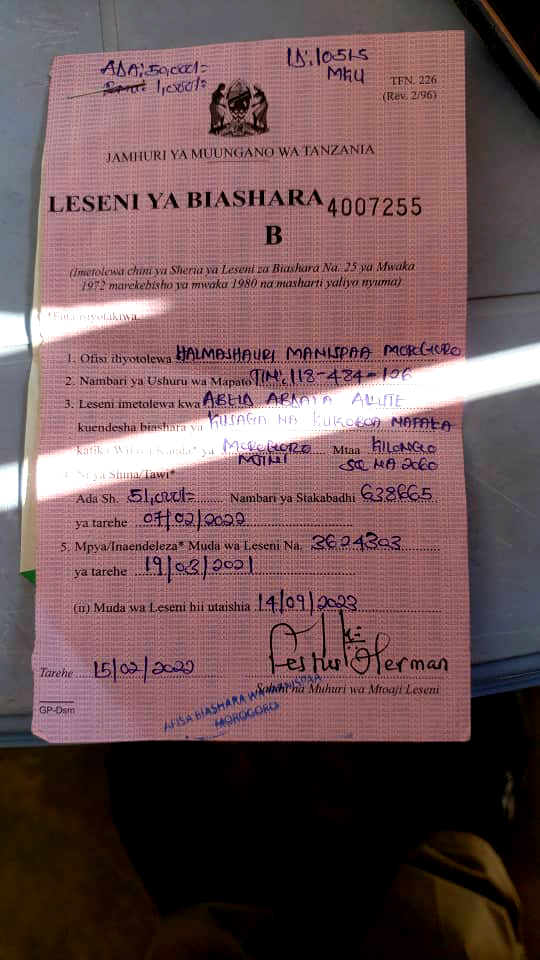 ADA: 50,000/=
1,000/=
ID: 10515
MKU
TFN. 226
(Rev. 2/96)
JAMHURI YA MUUNGANO WA TANZANIA
LESENI YA BIASHARA 4007255
B
(Imetolewa chini ya Sheria ya Leseni za Biashara Na. 25 ya Mwaka
1972 marekebisho ya mwaka 1980 na masharti yaliyo nyuma)
*Futa isiyotakiwa.
1. Ofisi ihyotolewa HALMASHAURI MANISPAA MOROGORO
2. Nambari ya Ushuru wa Mapato TIN: 118-484-126
3. Leseni imetolewa kwa ABEID
kuendesha biashara ya KUSAGA NA KUKOBOA NAFAKA
katika Wilaya Kanda* ya MOROGORO MJINI Mtaa KILONGO
SQ NA 2060
4. Ni ya Shina/Tawi*
Ada Sh. 51,000/= Nambari ya Stakabadhi 638665
ya tarehe 07/02/2022
5. Mpya/Inaendeleza* Muda wa Leseni Na. 3624303
ya tarehe 19/03/2021
(ii) Muda wa Leseni hii utaishia 14/09/2023
Festus Herman
Tarehe 15/02/2022
Sahihi na Muhuri wa Mtoaji Leseni
GP-Dsm
AFISA BIASHARA WA MANISPAA
MOROGORO